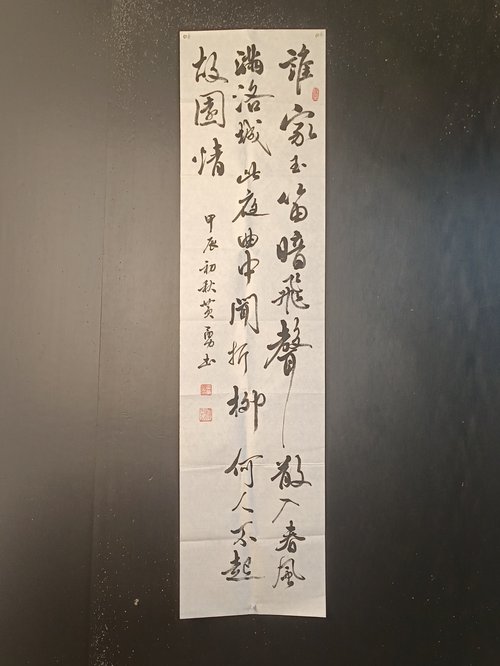 誰家玉笛暗飛聲散入春風
滿洛城此夜曲中聞折柳何人不起
故園情
甲辰初秋黃勇書